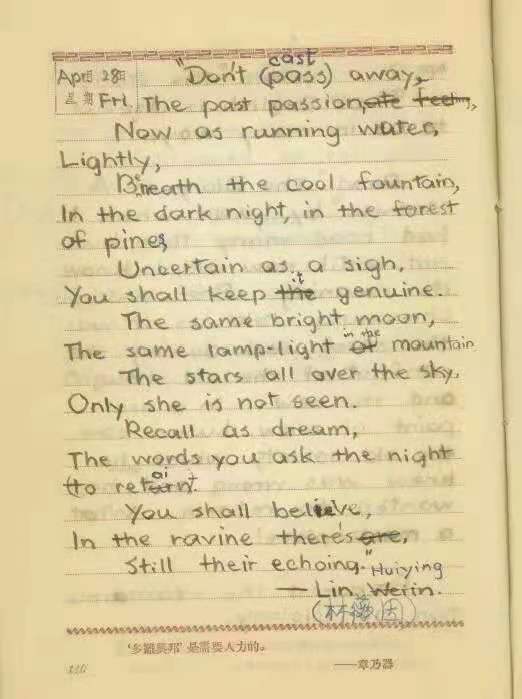 cast
"Don't (pass) away,
Apr月 28日
The past passionate feeling,
星期 Fri.
Now as running water,
Lightly,
Beneath the cool fountain,
In the dark night, in the forest
of pines,
Uncertain as a sigh,
it
You shall keep the genuine.
The same bright moon,
in the
The same lamp-light of mountain
The stars all over the sky,
Only she is not seen.
Recall as dream,
The words you ask the night
ai
(to return).
You shall believe,
In the ravine there's are,
Still their echoing."
Huiying
— Lin Weiin.
(林徽因)
'多难兴邦'是需要人力的。
——章乃器